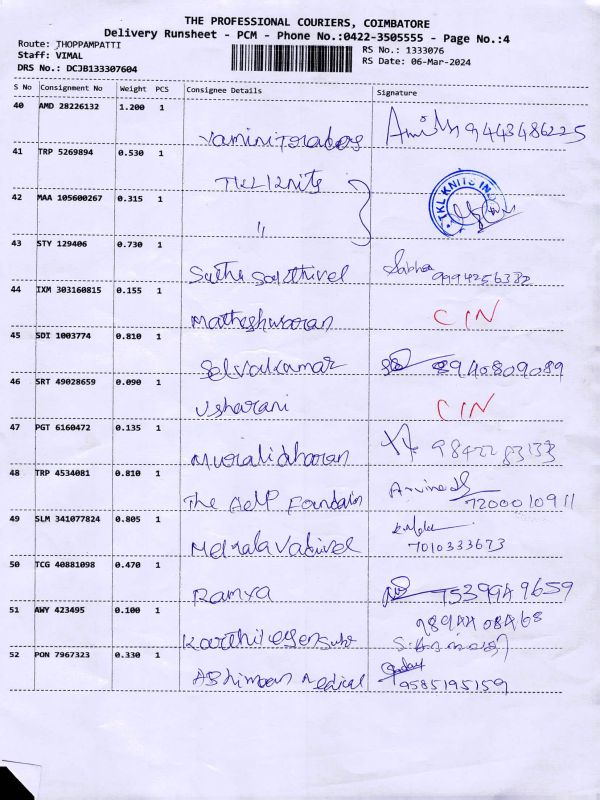 THE PROFESSIONAL COURIERS, COIMBATORE
Delivery Runsheet - PCM - Phone No.:0422-3505555 - Page No.:4
Route: THOPPAMPATTI
Staff: VIMAL
DRS No.: DCJB133307604
RS No.: 1333076
RS Date: 06-Mar-2024
S No Consignment No Weight PCS Consignee Details Signature
40 AMD 28226132 1.200 1
Yamini Toraders 9443486225
41 TRP 5269894 0.530 1
TKL Knits
TKL KNITS
42 MAA 105600267 0.315 1
"
43 STY 129406 0.730 1
Sutha Sakthivel 9994256382
44 IXM 303160815 0.155 1
Matheshwaran CIN
45 SDI 1003774 0.810 1
Selvakumar 8940809089
46 SRT 49028659 0.090 1
Usharani CIN
47 PGT 6160472 0.135 1
Muralidharan
48 TRP 4534081 0.810 1
The 7200010911
49 SLM 341077824 0.805 1
7010333673
50 TCG 40881098 0.470 1
Ramya
51 AWY 423495 0.100 1
52 PON 7967323 0.330 1
Medical 9585195159